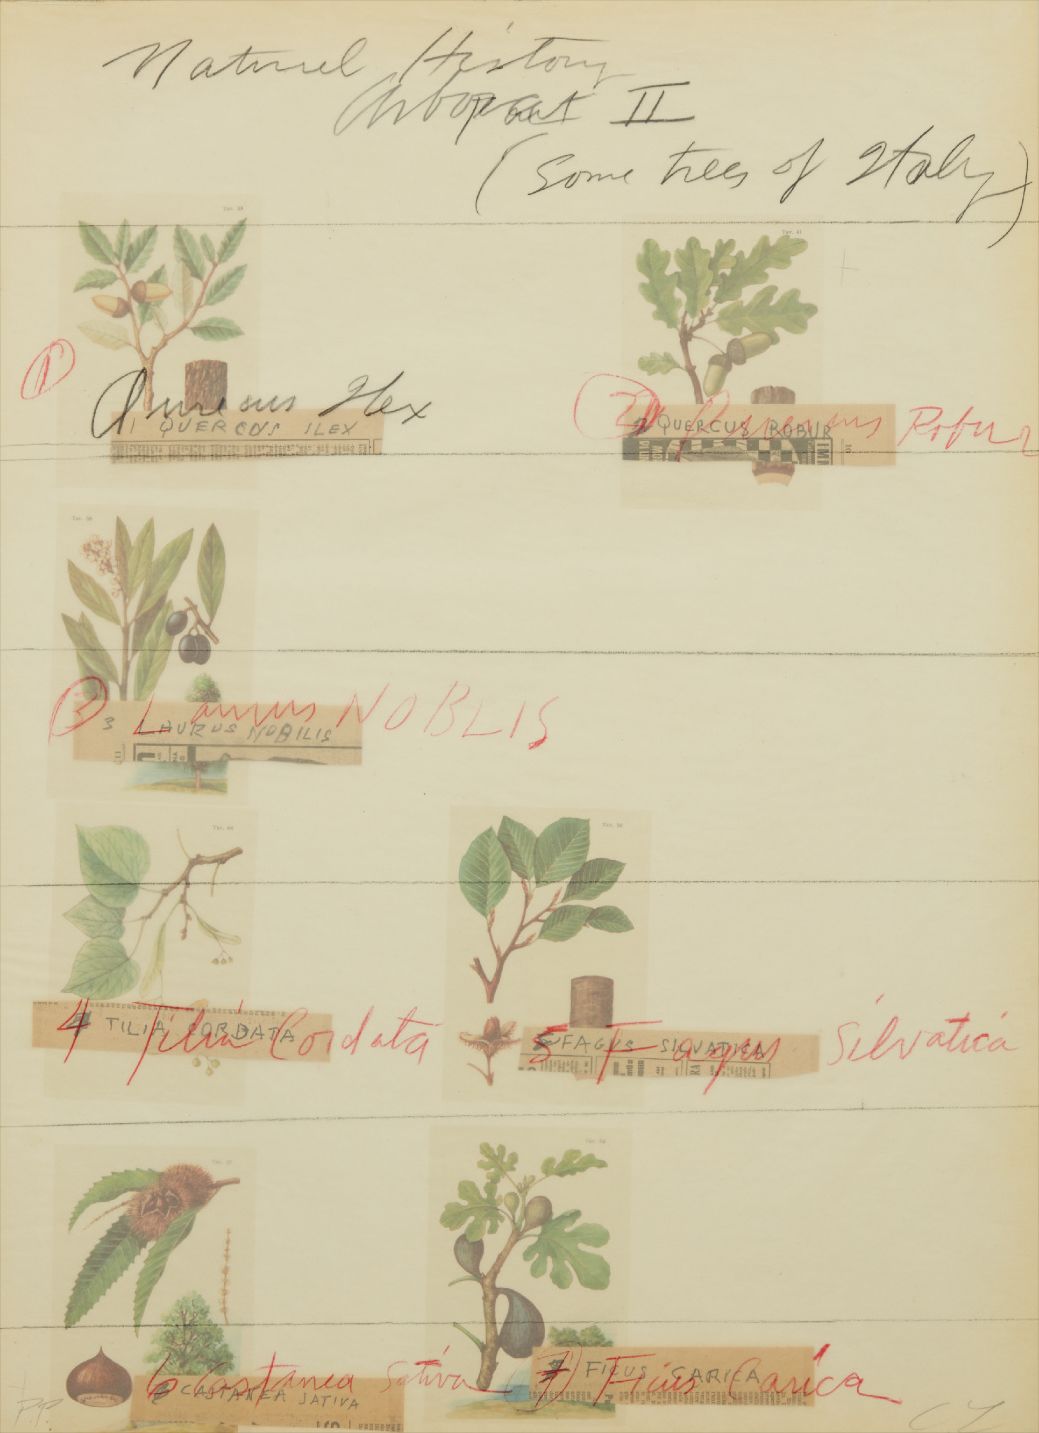 Naturel History
Part II
(Some trees of Italy)
Tav. 39
Tav. 41
1
Ilex
1 QUERCUS ILEX
2
Robur
QUERCUS ROBUR
Tav. 38
3 Laurus NOBLIS
3 LAURUS NOBILIS
4 Tilia Cordata
TILIA CORDATA
5 Fagus Silvatica
FAGUS SILVATICA
6 Castanea Sativa
CASTANEA SATIVA
7) Ficus Carica
FICUS CARICA
P.P.
CT